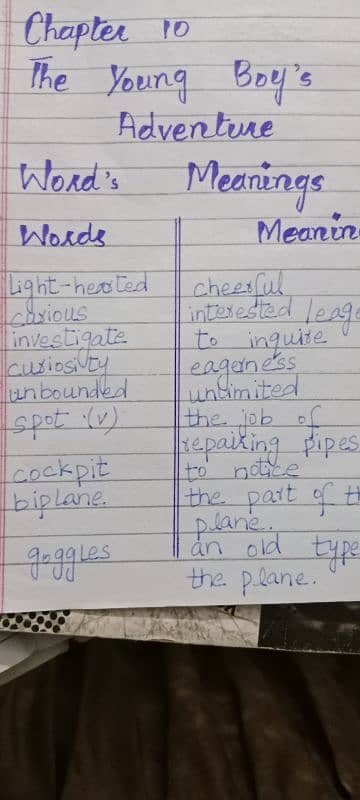 Chapter 10
The Young Boy's
Adventure
Word's Meanings
Words Meanin
Light-hearted cheerful
curious interested /eage
investigate to inquire
curiosity eagerness
unbounded unlimited
spot (v) the job of
repairing pipes
cockpit to notice
biplane. the part of th
plane.
goggles an old type
the plane.